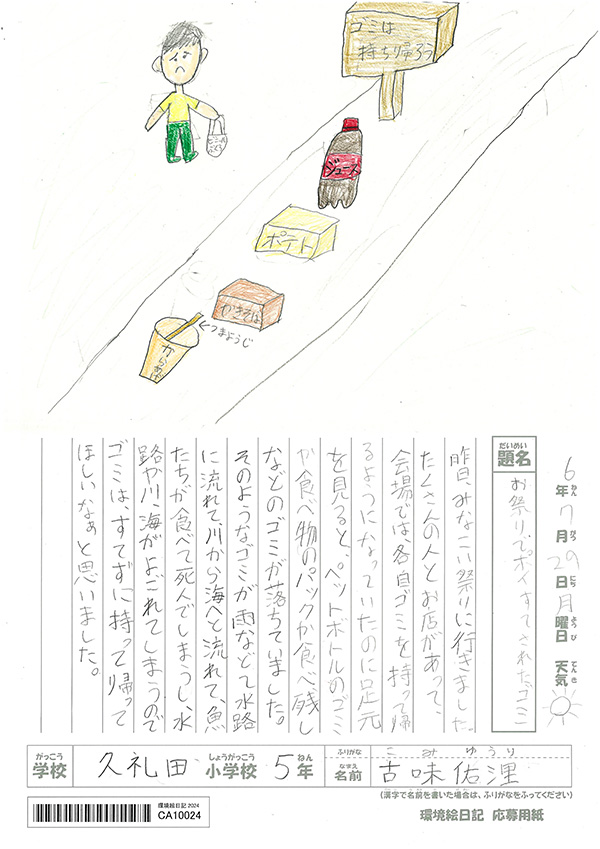 ゴミは
持ち帰ろう
ビニール
ふくろ
ジュース
ポテト
やきそば
←つまようじ
からあげ
6年7月29日月曜日 天気
ねん がつ にち ようび てんき
だいめい
題名
お祭りでポイすてされたゴミ
昨日、みなこい祭りに行きました。
たくさんの人とお店があって、
会場では、各自ゴミを持って帰
るようになっていたのに足元
を見ると、ペットボトルのゴミ
か食べ物のパックか食べ残し
などのゴミが落ちていました。
そのようなゴミが雨などで水路
に流れて、川から海へと流れて、魚
たちが食べて死んでしまうし、水
路や川、海がよごれてしまうので
ゴミは、すてずに持って帰って
ほしいなぁと思いました。
がっこう しょうがっこう ねん ふりがな こみ ゆうり
学校 久礼田 小学校 5年 なまえ 名前 古味佑浬
(漢字で名前を書いた場合は、ふりがなをふってください)
環境絵日記2024
CA10024
環境絵日記 応募用紙